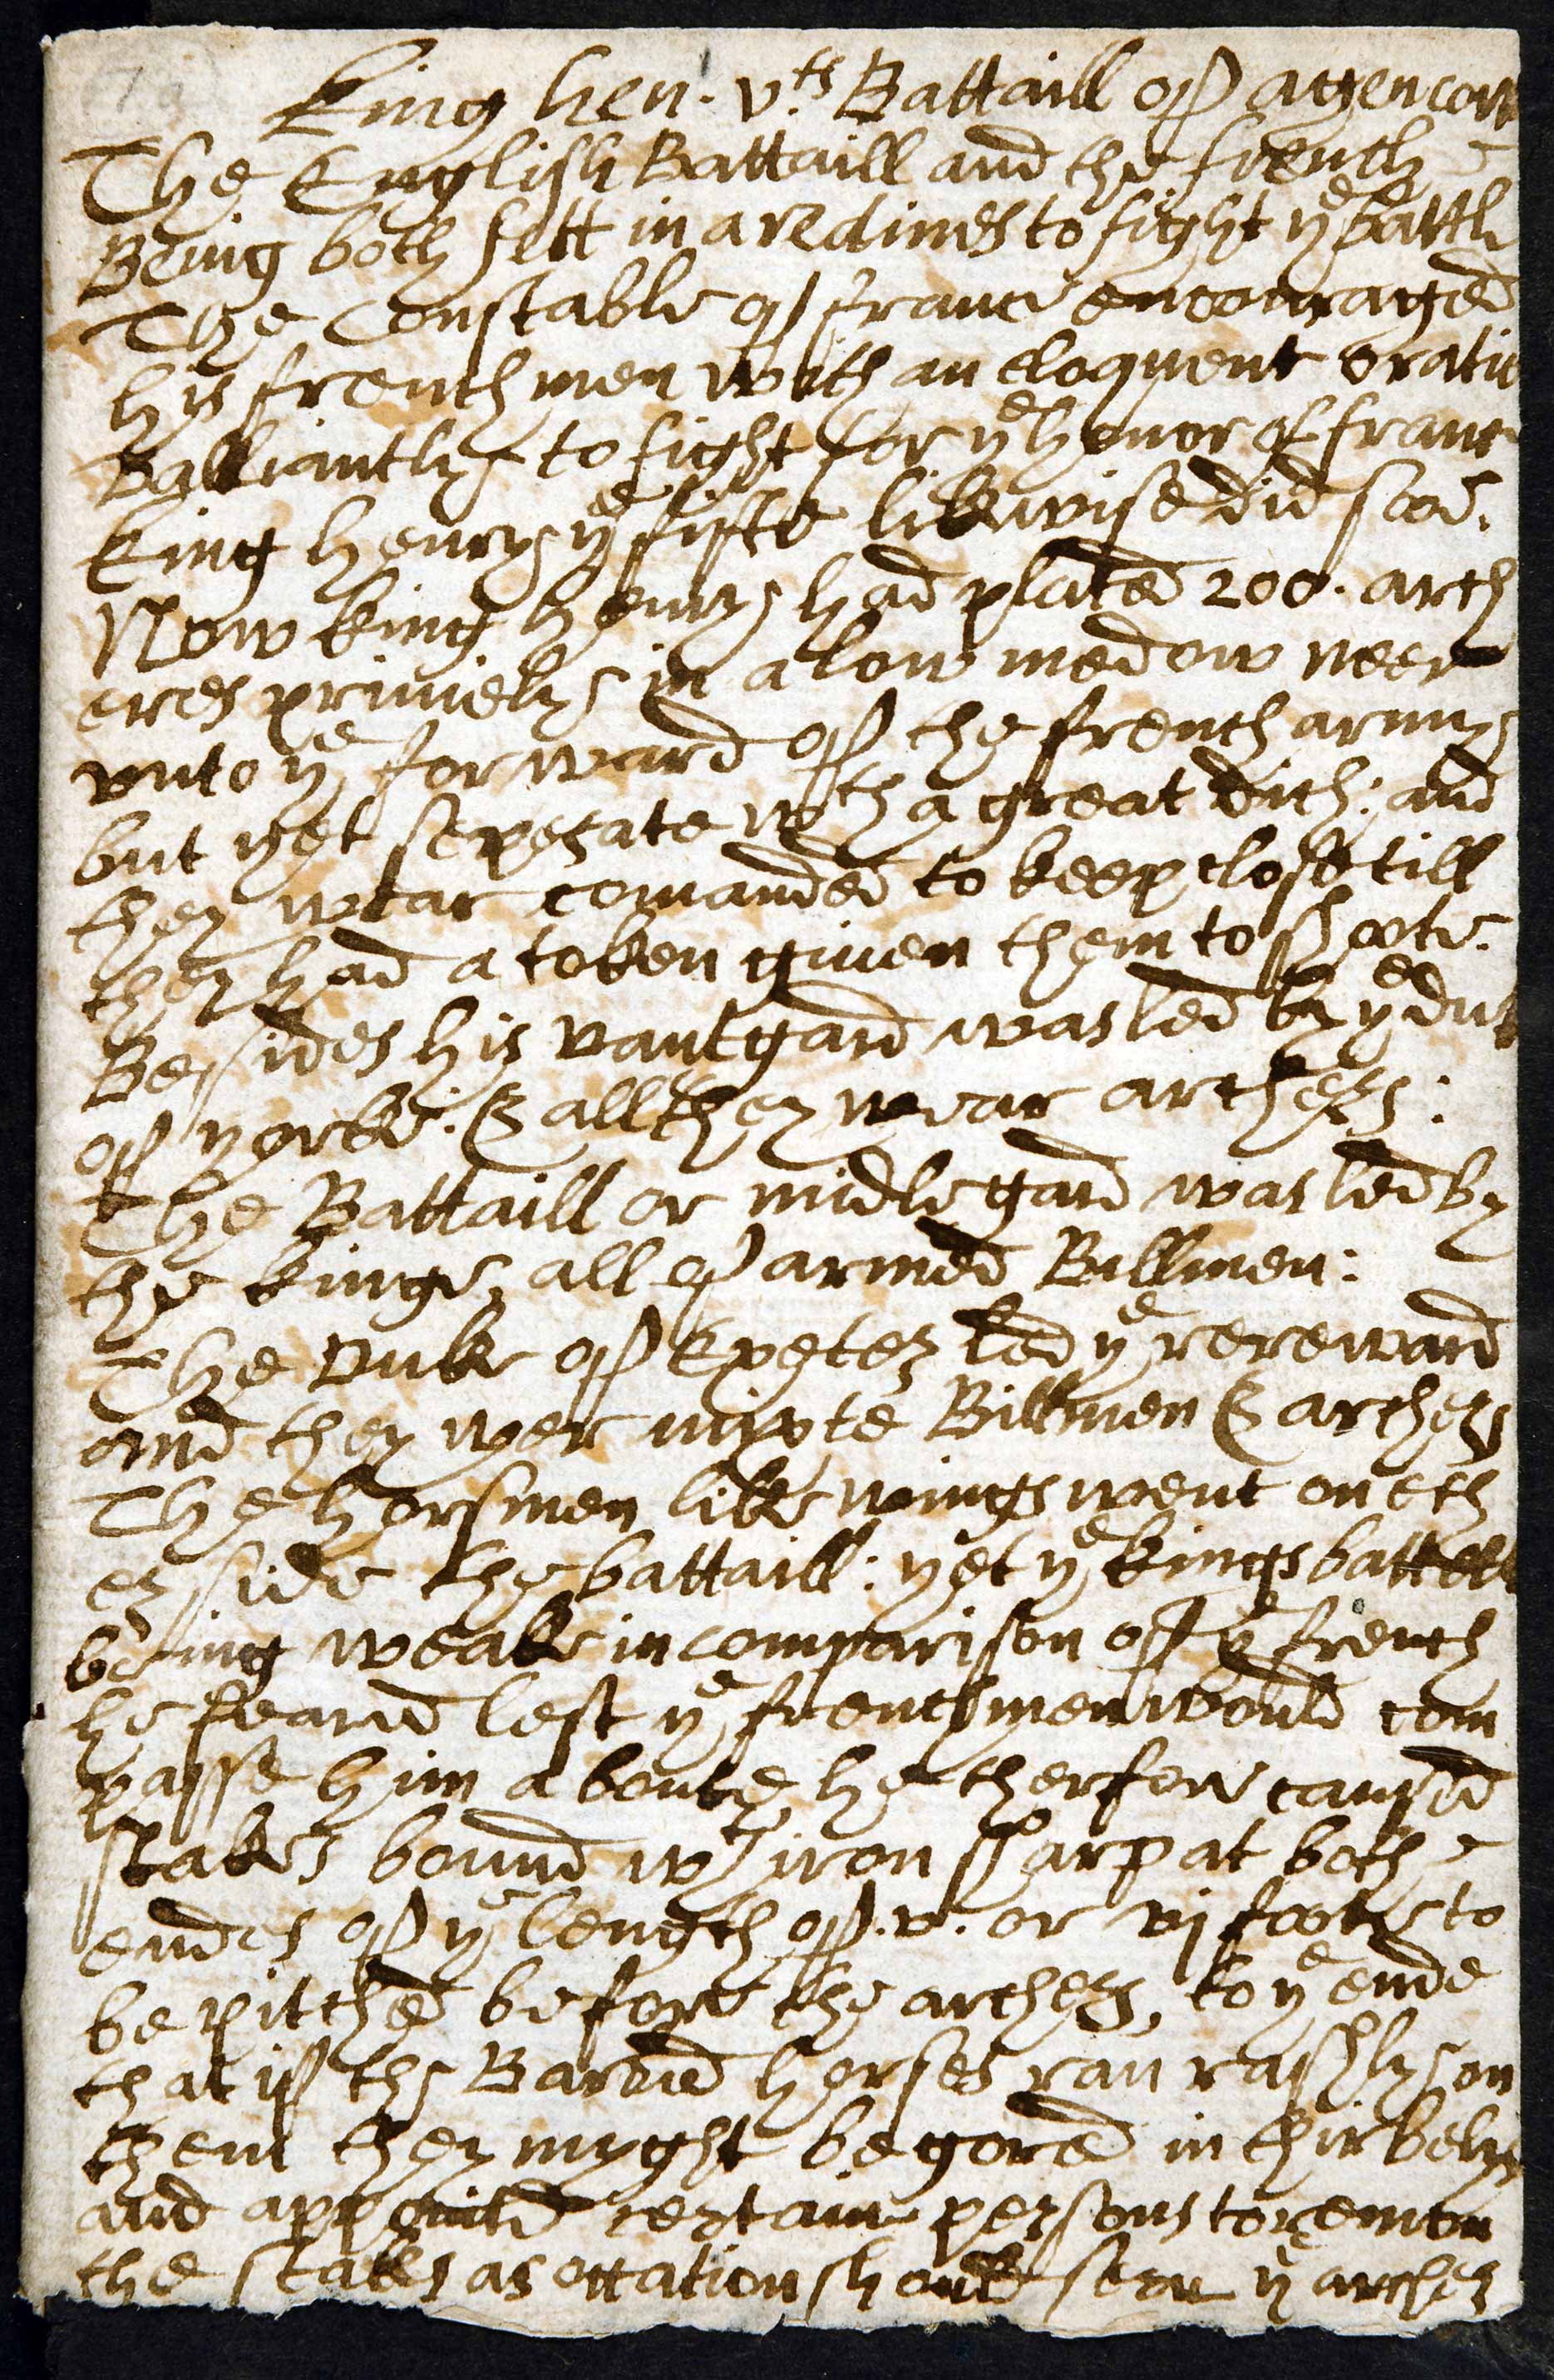 King hen. v.ths Battaill of agencour
The English Battaill and the french
Being both sett in a redines to fight ye battle
The Constable of france encouraged
his frenchmen with an eloquent oratio
valliantly to fight for ye honor of france
King Henry ye fifte likwise did soe.
Now king Henry had placed 200. arch
eres priviely in a low medow neer
unto ye forward of the french army
but yet seperate wth a great dich: and
they wear comanded to keep close till
they had a token given them to shoote.
Besides his vantgard was led by ye duk
of yorke. & all they wear archers:
The Battaill or midle gard was led by
the kinge, all of armed Billmen:
The Duk of Exeter led ye rereward
and they wer mixte Billmen & archers
The horsmen like wings went on eth
er side the battaill: yet ye kings battell
being weake in comparison of ye french
he feared lest ye frenchmen would com
passe him aboute, he therfore caused
stakes bound wth iron sharp at both
endes of ye length of .v. or vj foote to
be pitched before the archers, to ye ende
that if the Barded horses ran rashly on
them they myght be gored in thir belys
and appointed certaine persons to remove
the stakes as occation should serve ye archers